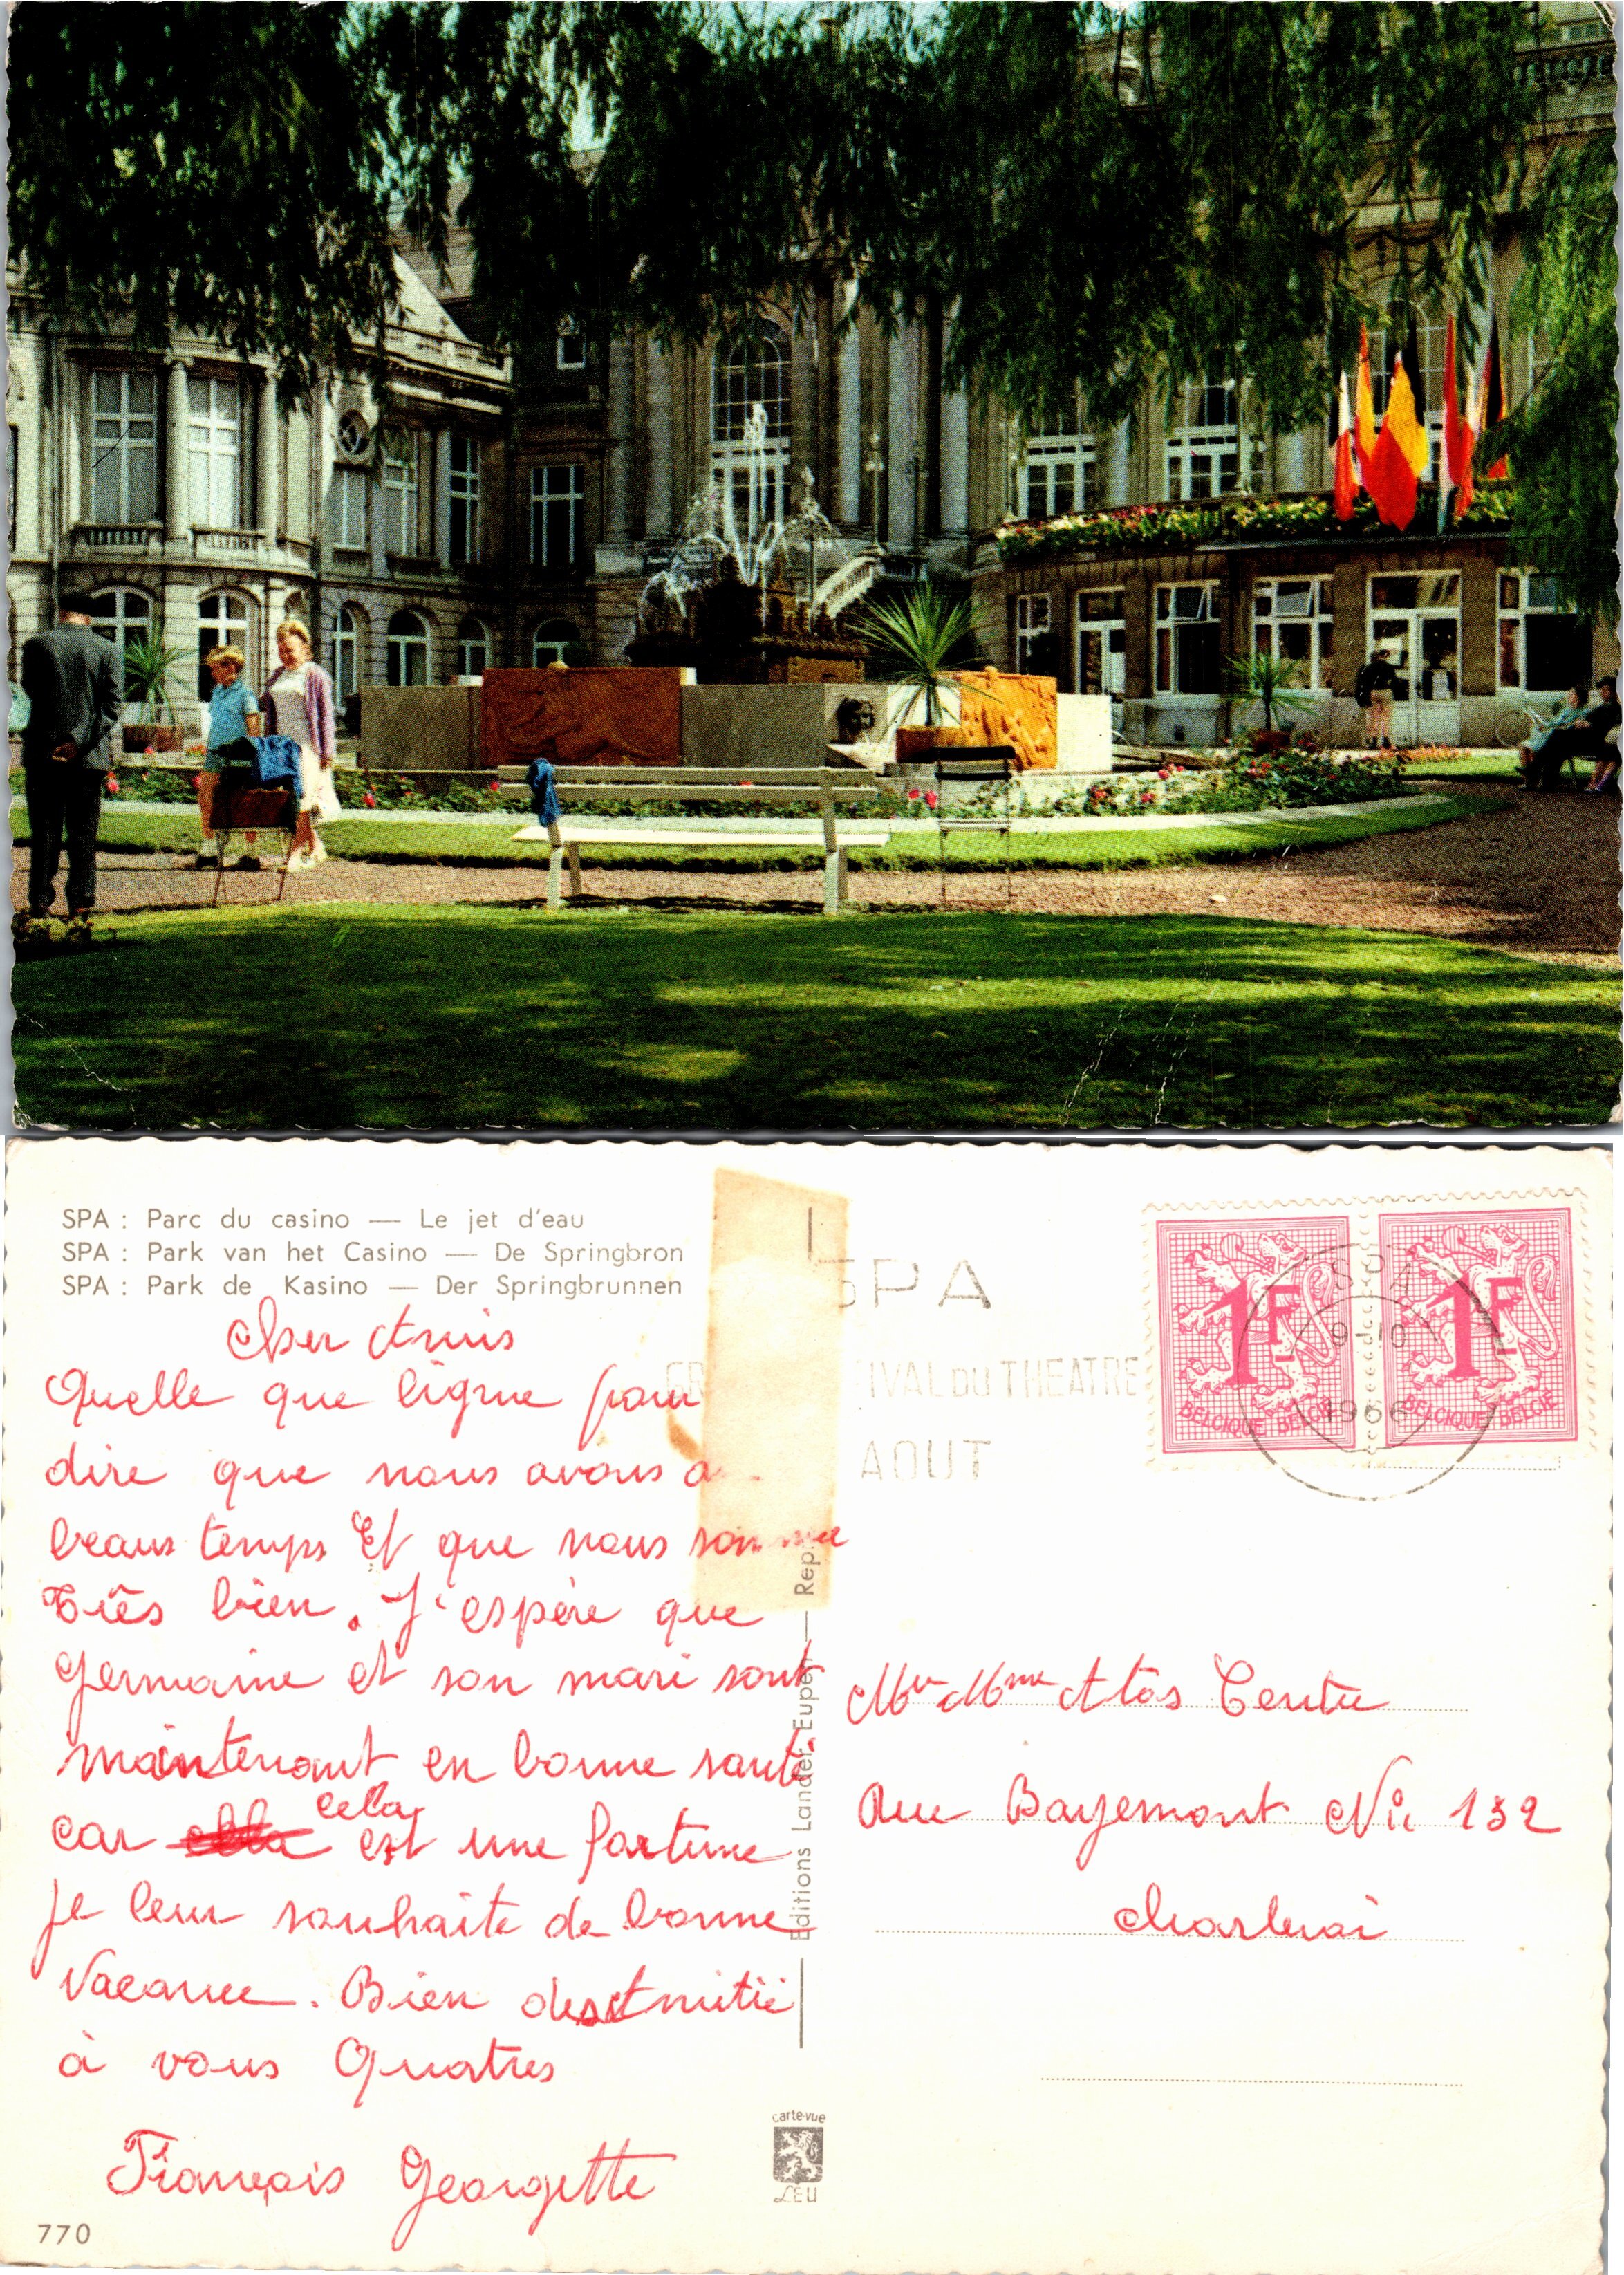 SPA : Parc du casino — Le jet d'eau
SPA : Park van het Casino — De Springbron
SPA : Park de Kasino — Der Springbrunnen
Cher Amis
Quelle que ligne pour
dire que nous avons
beaus temps Et que nous somme
très bien. J'espère que
Germaine et son mari sont
maintenant en bonne santé
car cela est une fortune
je leur souhaite de bonne
Vacance. Bien des Amitié
à vous Quatres
François Georgette
770
Editions Lander, Eupen — Rep.
carte-vue
LEU
SPA
IVAL DU THEATRE
AOUT
SPA
9-10
1966
1F
BELGIQUE BELGIE
1F
BELGIQUE BELGIË
Mr Mme
Rue Bayemont No 132
Charleroi